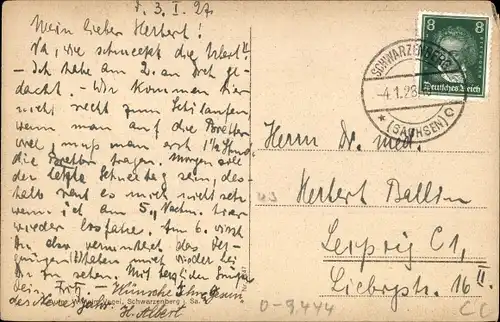 d. 3. I. 27
Mein lieber Herbert!
Na, wie schmeckt die Arbeit?
- Ich habe am 2. an Dich ge-
dacht. - Wir kommen hier
nicht recht zum Schilaufen,
wenn man auf die Bretter
will, muß man erst 1½ Stund.
die Bretter tragen. Morgen soll
der letzte Schneetag sein, des-
halb reut es mich nicht sehr,
wenn ich am 5. Nachm. hier
wieder losfahre. Am 6. wirst
Du das Ver-
gnügen haben mich wieder bei
Dir zu sehen. Mit herzlichen Grüßen
Dein Fritz. - Wünsche
des Neues Jahr. H. Albert
Schwarzenberg i. Sa.
SCHWARZENBERG
-4.1.28
* (SACHSEN) c
8 8
Deutsches Reich
Herrn Dr. med.
Herbert Ballin
Leipzig C1,
Liebigstr. 16 II.
D-9.444